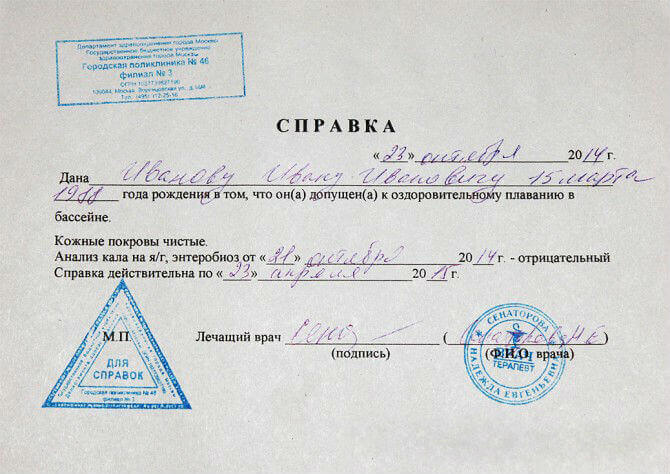 Департамент здравоохранения города Москвы
Государственное бюджетное учреждение
здравоохранения города Москвы
Городская поликлиника № 46
филиал № 3
Москва, Воронцовская ул.,
СПРАВКА
« 23 » октября 2014 г.
Дана Иванову Ивану Ивановичу 15 марта
1988 года рождения в том, что он(а) допущен(а) к оздоровительному плаванию в
бассейне.
Кожные покровы чистые.
Анализ кала на я/г, энтеробиоз от « 21 » октября 2014 г. - отрицательный
Справка действительна по « 23 » апреля 2015 г.
М.П. Лечащий врач ( )
(подпись) (Ф.И.О. врача)
ДЛЯ
СПРАВОК
Городская поликлиника № 46
филиал № 3
СЕНАТОРОВА
НАДЕЖДА ЕВГЕНЬЕВНА
ВРАЧ
ТЕРАПЕВТ